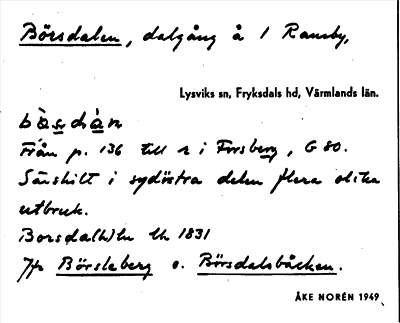 Börsdalen, dalgång å 1 Ransby,
Lysviks sn, Fryksdals hd, Värmlands län.
Från p. 136 till r i Forsberg, G 80.
Särskilt i sydöstra delen flera olika
utbruk.
Borsdal(h)n lk 1831
Jfr Börsleberg o. Börsdalsbäcken.
ÅKE NORÉN 1949